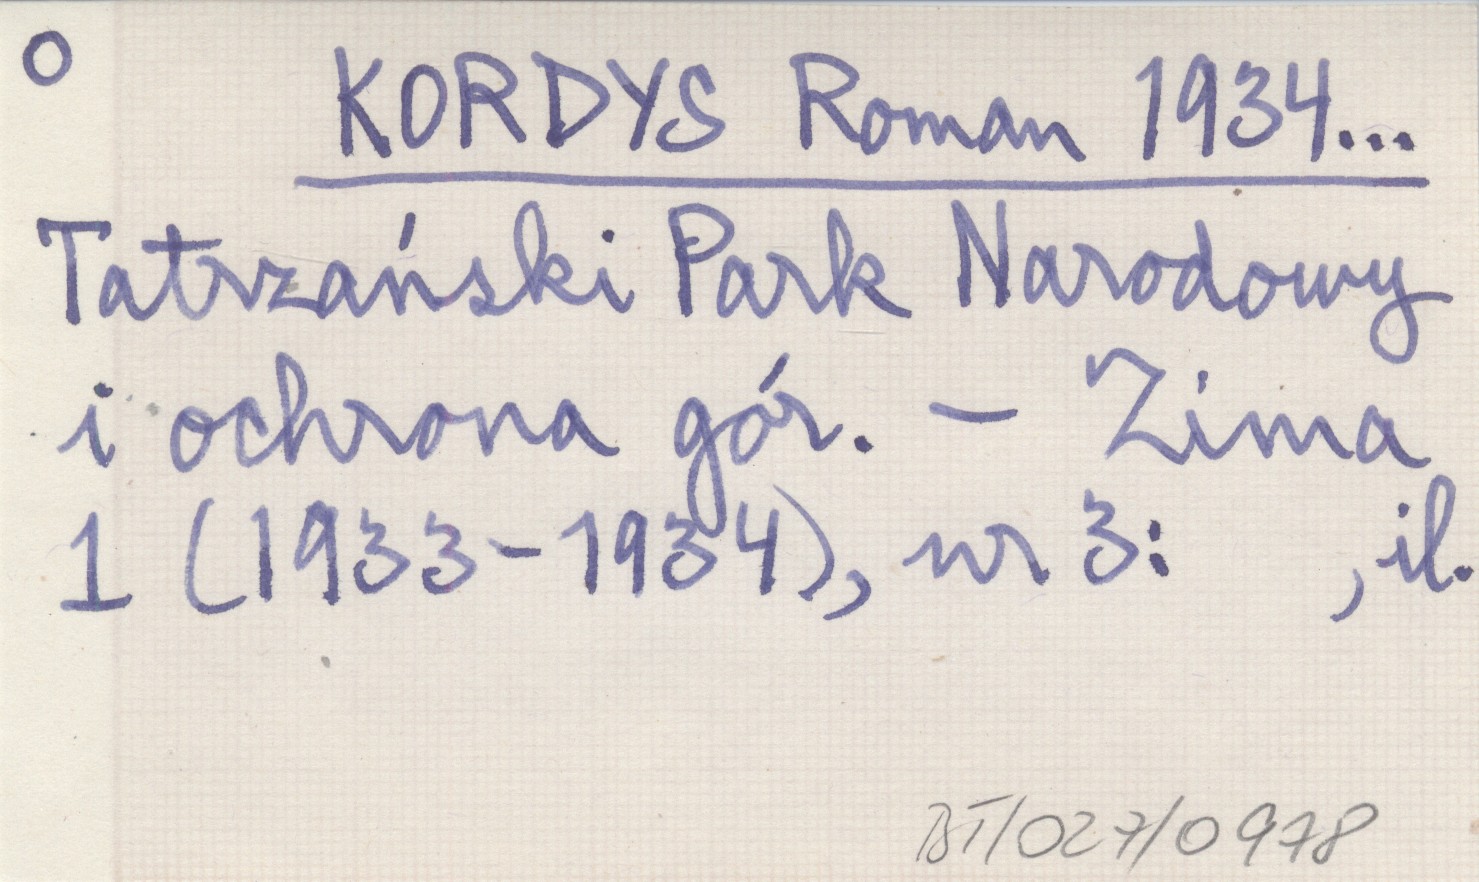 O KORDYS Roman 1934...
Tatrzański Park Narodowy
i ochrona gór. – Zima
1 (1933-1934), nr 3: , il.
BT/027/0978